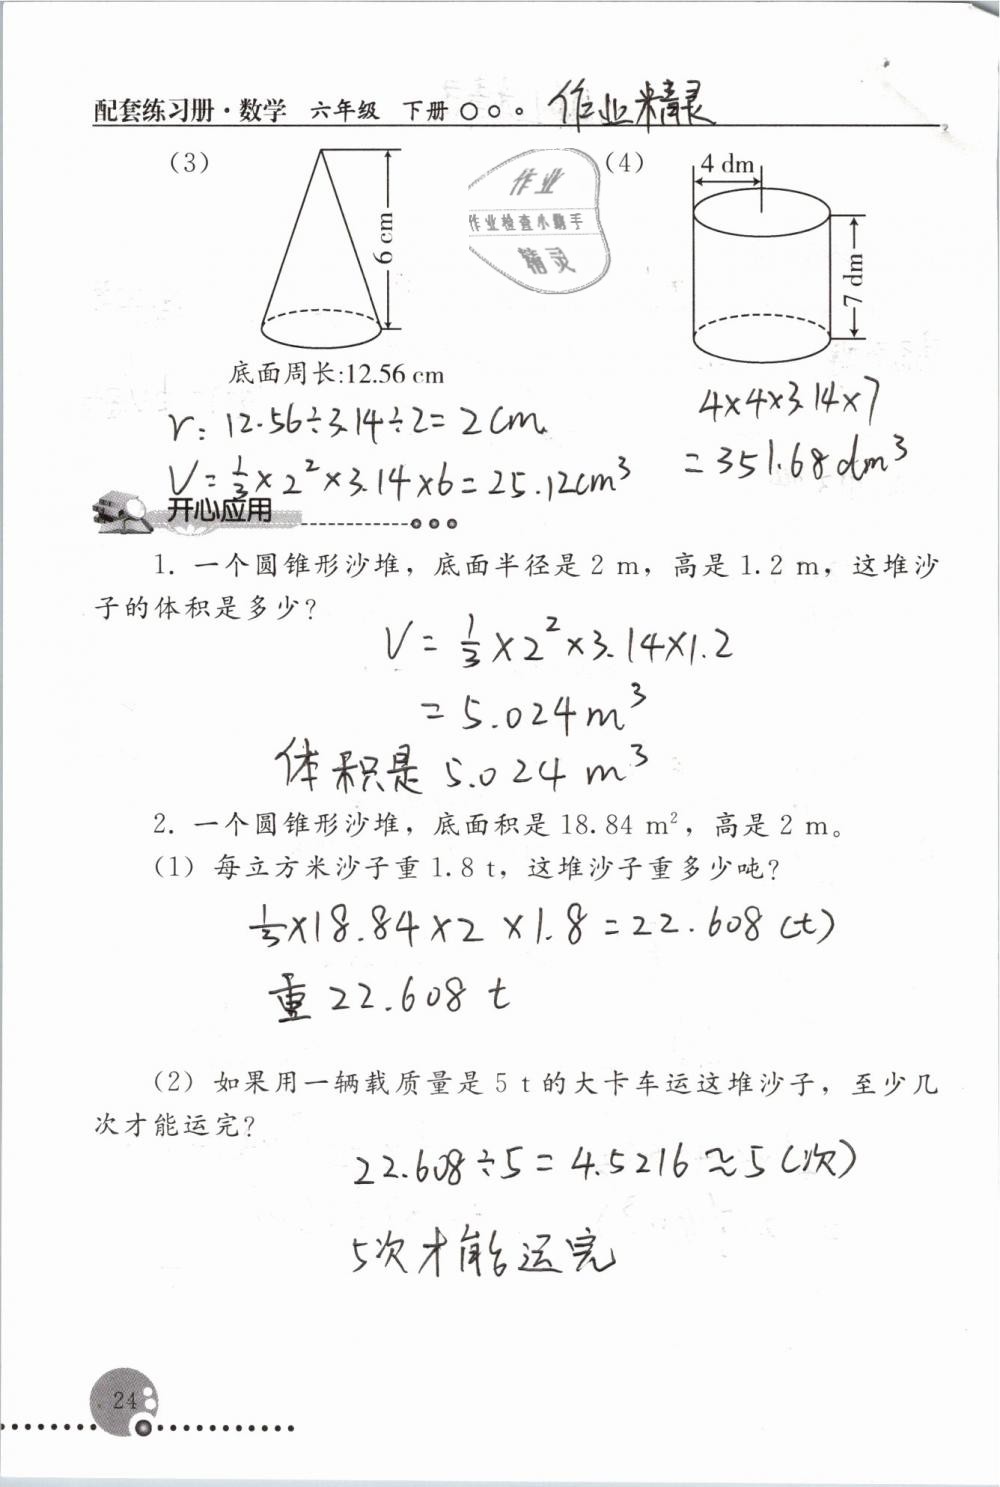 配套练习册·数学 六年级 下册 作业精灵
(3)
6 cm
底面周长:12.56 cm
r: 12.56÷3.14÷2=2cm
V=1/3×2²×3.14×6=25.12cm³
作业
作业检查小助手
精灵
(4)
4 dm
7 dm
4×4×3.14×7
=351.68dm³
开心应用
1. 一个圆锥形沙堆，底面半径是 2 m，高是 1.2 m，这堆沙
子的体积是多少?
V=1/3×2²×3.14×1.2
=5.024m³
体积是 5.024 m³
2. 一个圆锥形沙堆，底面积是 18.84 m²，高是 2 m。
(1) 每立方米沙子重 1.8 t，这堆沙子重多少吨?
1/3×18.84×2×1.8=22.608(t)
重 22.608 t
(2) 如果用一辆载质量是 5 t 的大卡车运这堆沙子，至少几
次才能运完?
22.608÷5=4.5216≈5(次)
5次才能运完
24